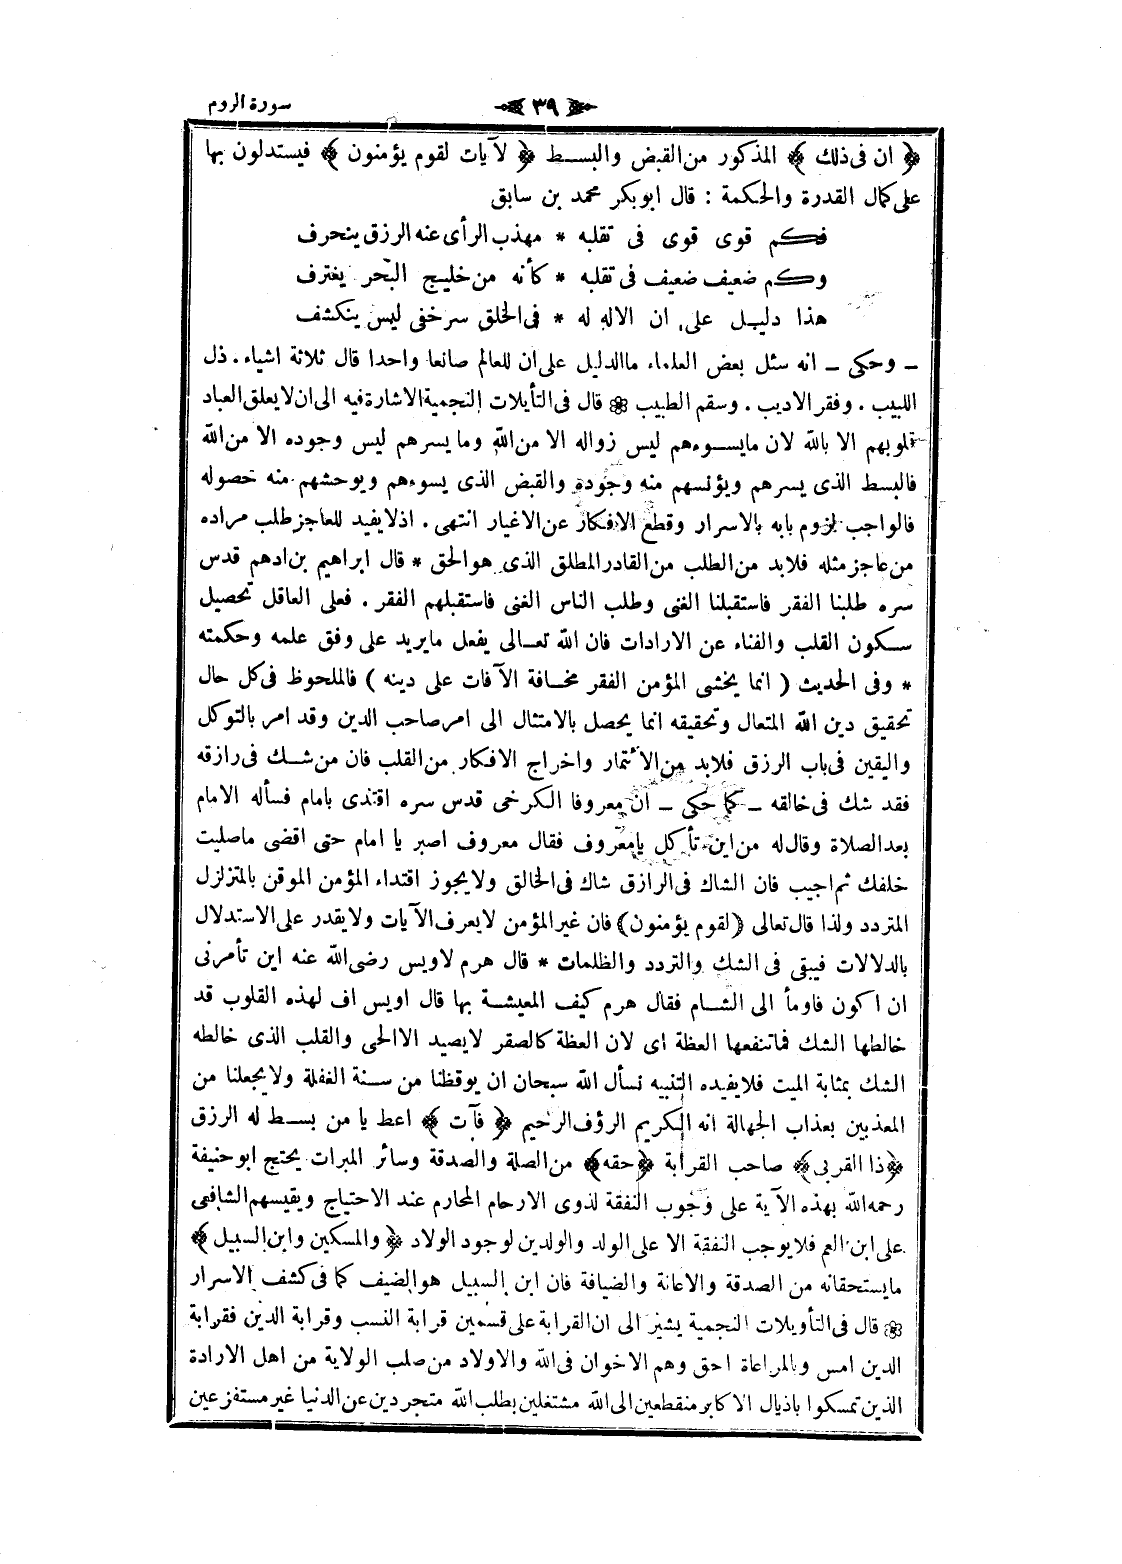 سورة الروم ٣٩
﴿ ان فى ذلك ﴾ المذكور من القبض والبسط ﴿ لآيات لقوم يؤمنون ﴾ فيستدلون بها
على كمال القدرة والحكمة : قال ابوبكر محمد بن سابق
فكم قوى قوى فى تقلبه * مهذب الرأى عنه الرزق ينحرف
وكم ضعيف ضعيف فى تقلبه * كأنه من خليج البحر يغترف
هذا دليل على ان الاله له * فى الخلق سر خفى ليس ينكشف
ـ وحكى ـ انه سئل بعض العلماء ما الدليل على ان للعالم صانعا واحدا قال ثلاثة اشياء . ذل
اللبيب . وفقر الاديب . وسقم الطبيب ❁ قال فى التأيلات النجمية الاشارة فيه الى ان لا يعلق العباد
قلوبهم الا بالله لان ما يسوءهم ليس زواله الا من الله وما يسرهم ليس وجوده الا من الله
فالبسط الذى يسرهم ويؤنسهم منه وجوده والقبض الذى يسوءهم ويوحشهم منه حصوله
فالواجب لزوم بابه بالاسرار وقطع الافكار عن الاغيار انتهى . اذ لا يفيد للعاجز طلب مراده
من عاجز مثله فلابد من الطلب من القادر المطلق الذى هو الحق * قال ابراهيم بن ادهم قدس
سره طلبنا الفقر فاستقبلنا الغنى وطلب الناس الغنى فاستقبلهم الفقر . فعلى العاقل تحصيل
سكون القلب والفناء عن الارادات فان الله تعالى يفعل ما يريد على وفق علمه وحكمته
* وفى الحديث ( انما يخشى المؤمن الفقر مخافة الآفات على دينه ) فالملحوظ فى كل حال
تحقيق دين الله المتعال وتحقيقه انما يحصل بالامتثال الى امر صاحب الدين وقد امر بالتوكل
واليقين فى باب الرزق فلابد من الائتمار واخراج الافكار من القلب فان من شك فى رازقه
فقد شك فى خالقه ـ كما حكى ـ ان معروفا الكرخى قدس سره اقتدى بامام فسأله الامام
بعد الصلاة وقال له من اين تأكل يا معروف فقال معروف اصبر يا امام حتى اقضى ما صليت
خلفك ثم اجيب فان الشاك فى الرازق شاك فى الخالق ولا يجوز اقتداء المؤمن الموقن بالمتزلزل
المتردد ولذا قال تعالى ﴿لقوم يؤمنون﴾ فان غير المؤمن لا يعرف الآيات ولا يقدر على الاستدلال
بالدلالات فيبقى فى الشك والتردد والظلمات * قال هرم لاويس رضى الله عنه اين تأمرنى
ان اكون فاومأ الى الشام فقال هرم كيف المعيشة بها قال اويس اف لهذه القلوب قد
خالطها الشك فما تنفعها العظة اى لان العظة كالصقر لا يصيد الا الحى والقلب الذى خالطه
الشك بمثابة الميت فلا يفيده التنبيه نسأل الله سبحان ان يوقظنا من سنة الغفلة ولا يجعلنا من
المعذبين بعذاب الجهالة انه الكريم الرؤف الرحيم ﴿ فآت ﴾ اعط يا من بسط له الرزق
﴿ذا القربى﴾ صاحب القرابة ﴿حقه﴾ من الصلة والصدقة وسائر المبرات يحتج ابو حنيفة
رحمه الله بهذه الآية على وجوب النفقة لذوى الارحام المحارم عند الاحتياج ويقيسهم الشافعى
على ابن العم فلا يوجب النفقة الا على الولد والوالدين لوجود الولاد ﴿ والمسكين وابن السبيل ﴾
ما يستحقانه من الصدقة والاعانة والضيافة فان ابن السبيل هو الضيف كما فى كشف الاسرار
❁ قال فى التأويلات النجمية يشير الى ان القرابة على قسمين قرابة النسب وقرابة الدين فقرابة
الدين امس وبالمراعاة احق وهم الاخوان فى الله والاولاد من صلب الولاية من اهل الارادة
الذين تمسكوا باذيال الاكابر منقطعين الى الله مشتغلين بطلب الله متجردين عن الدنيا غير مستفزعين